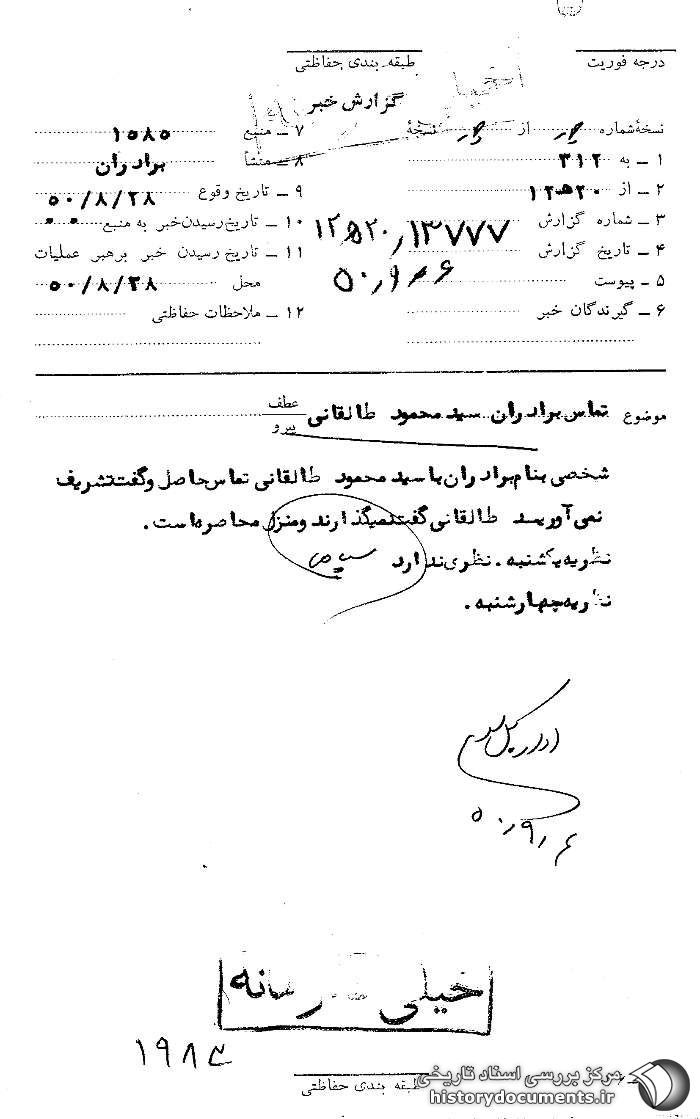 درجه فوریت
طبقه بندی حفاظتی
گزارش خبر
نسخهٔ شماره از نسخهٔ
۱ ــ به ۳۱۲
۲ ــ از ۱۲ﻫ۲۰
۳ ــ شماره گزارش ۱۲ﻫ۲۰/۱۳۷۷۷
۴ ــ تاریخ گزارش ۵۰/۹/۶
۵ ــ پیوست
۶ ــ گیرندگان خبر
۷ ــ منبع ۱۵۸۵
۸ ــ منشأ برادران
۹ ــ تاریخ وقوع ۵۰/۸/۲۸
۱۰ ــ تاریخ رسیدن خبر به منبع
۱۱ ــ تاریخ رسیدن خبر برهبر عملیات
محل ۵۰/۸/۲۸
۱۲ ــ ملاحظات حفاظتی
موضوع تماس برادران سید محمود طالقانی
عطف
پیرو
شخصی بنام برادران با سید محمود طالقانی تماس حاصل و گفت تشریف
نمی آورید طالقانی گفت نمیگذارند و منزل محاصره است.
نظریه یکشنبه. نظری ندارد
نظریه چهارشنبه.
۵۰/۹/۶
خیلی محرمانه
طبقه بندی حفاظتی
مرکز بررسی اسناد تاریخی
historydocuments.ir